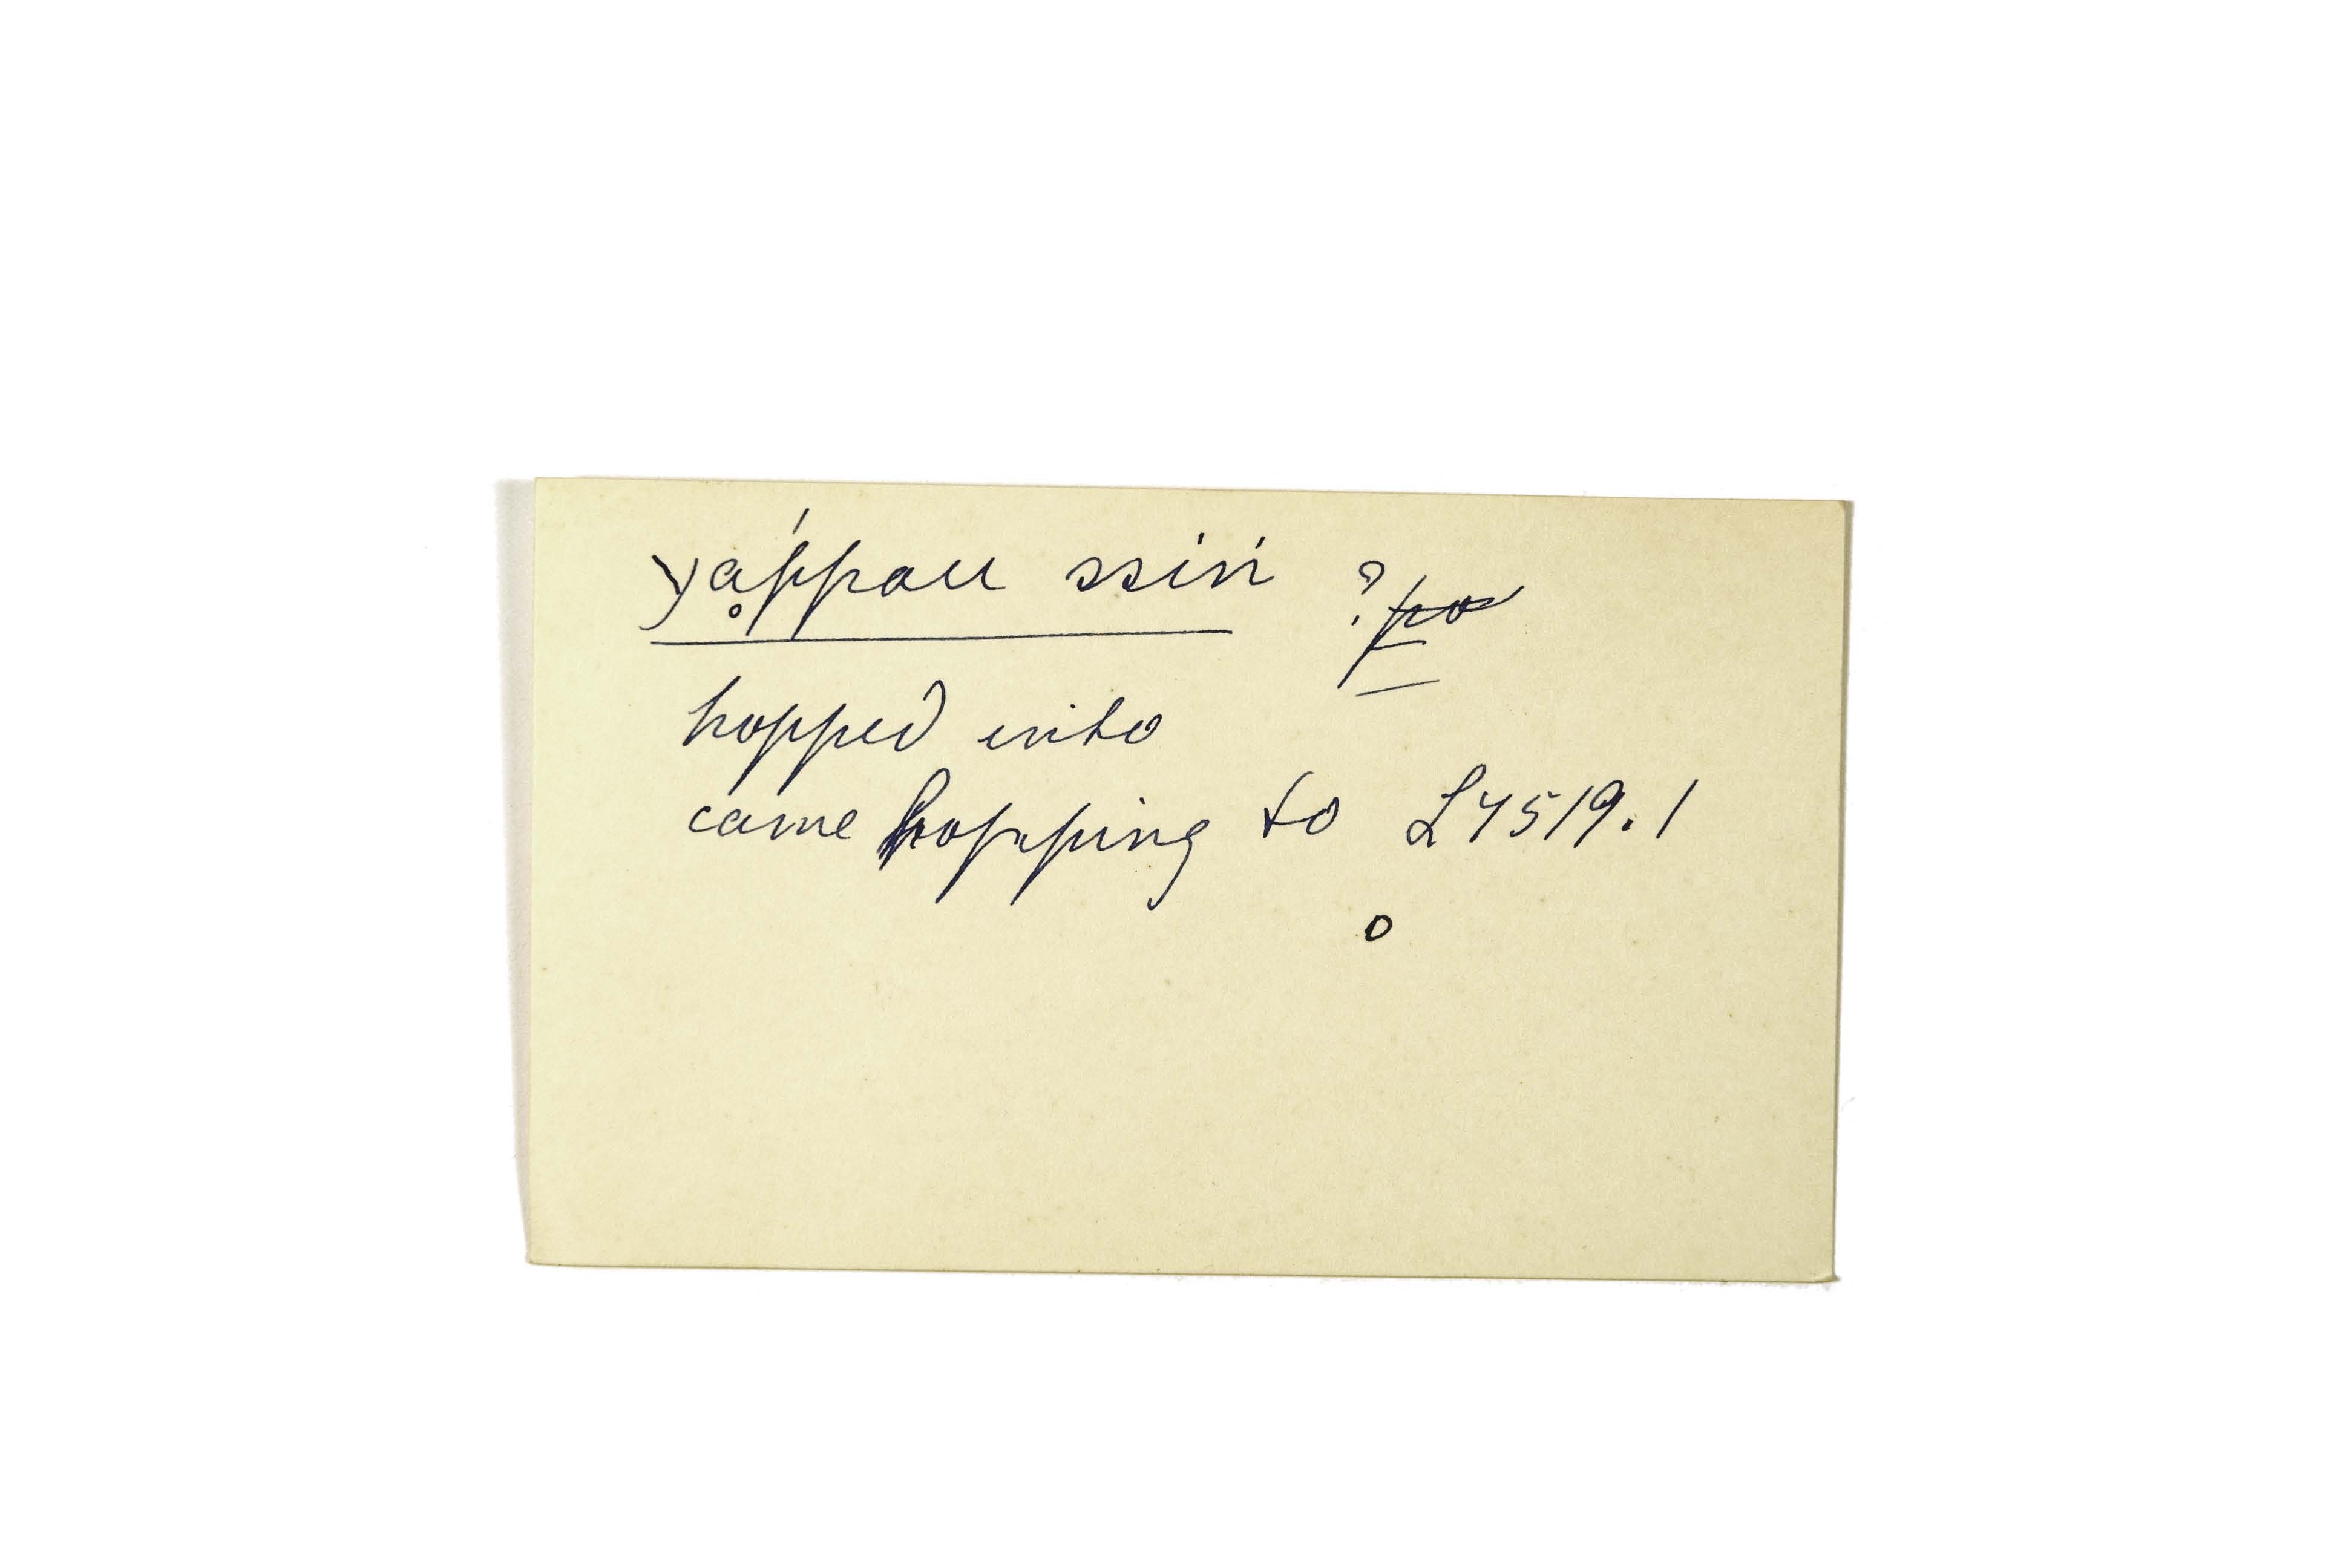 yḁ́ppau ssiń ?p̶o̶
hopped into
came hopping to L4519.1
o